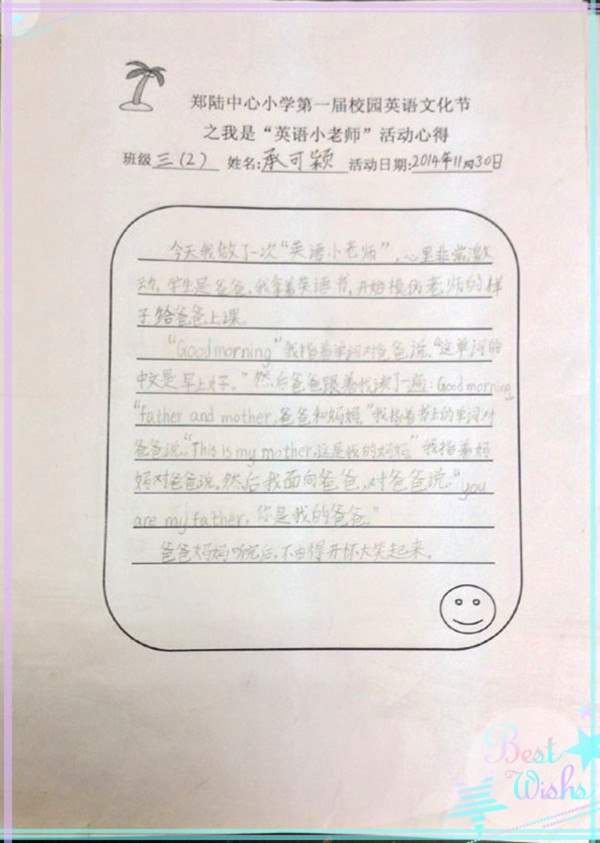 郑陆中心小学第一届校园英语文化节
之我是“英语小老师”活动心得
班级三(2) 姓名:承可颖 活动日期:2014年11月30日
今天我做了一次“英语小老师”,心里非常激
动。学生是爸爸,我拿着英语书,开始模仿老师的样
子给爸爸上课。
“Good morning”我指着单词对爸爸说,“这单词的
中文是早上好。”然后爸爸跟着我读了一遍:Good morning
“father and mother,爸爸和妈妈。”我指着书上的单词对
爸爸说。“This is my mother.这是我的妈妈。”我指着妈
妈对爸爸说,然后我面向爸爸,对爸爸说:“you
are my father,你是我的爸爸。”
爸爸妈妈听完后,不由得开怀大笑起来。
Best
Wishs